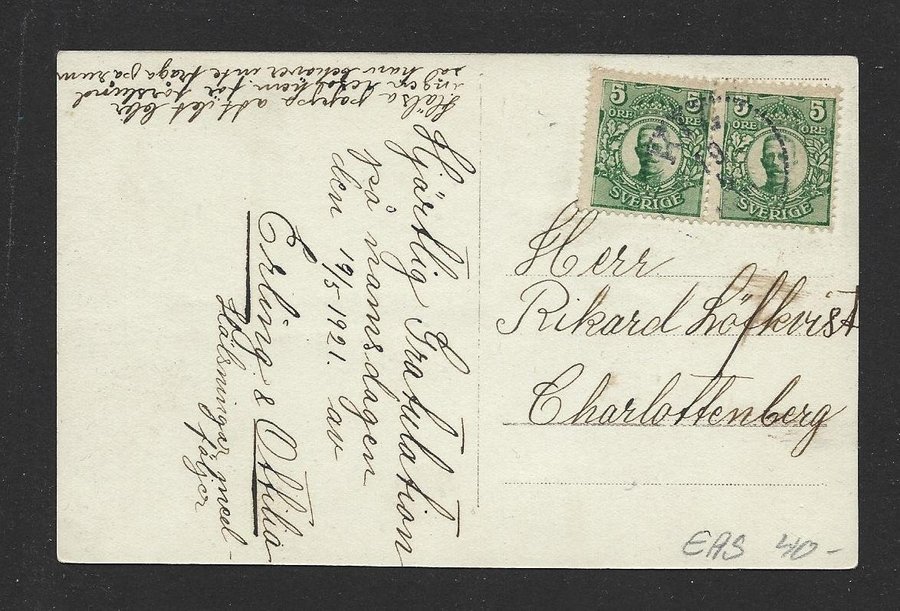 Hjärtlig Gratulation
på namnsdagen
den 19/5-1921. av
Erling & Ottilia
Hälsningar med-
följer
Hälsa pappa att det blir
ingen
sal han behöver inte fraga
5 5
ÖRE ÖRE
SVERIGE
5 5
ÖRE ÖRE
SVERIGE
Herr
Rikard Löfkvist
Charlottenberg
EAS 40-